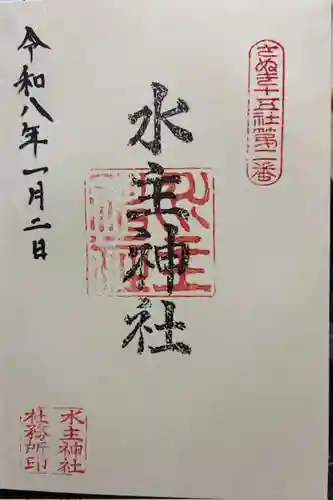 さぬき十五社第二番
水主神社
水主神社
令和八年一月二日
水主神社
社務所印